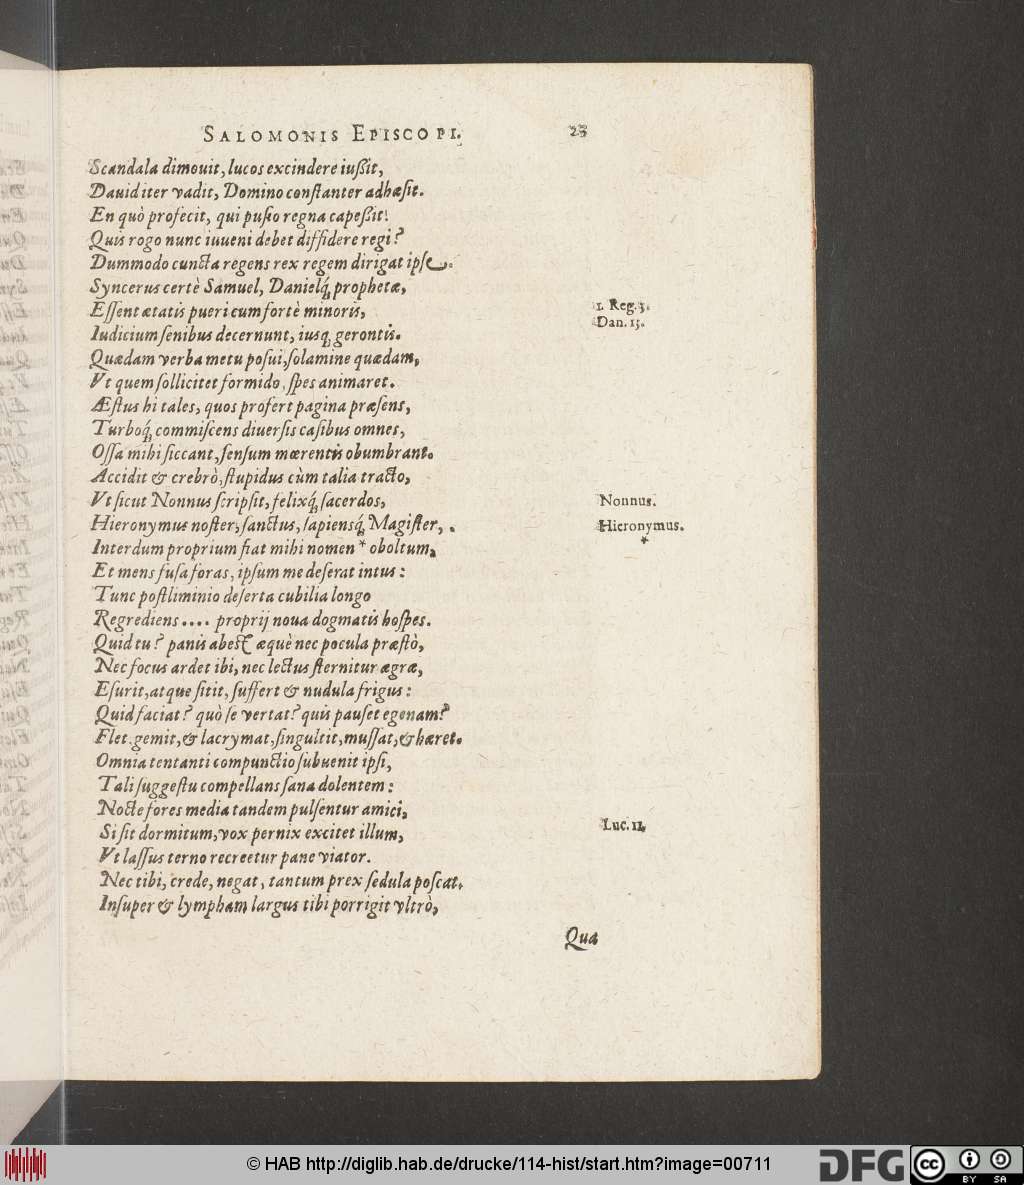 SALOMONIS EPISCOPI. 23
Scandala dimouit, lucos excindere iußit,
Dauid iter vadit, Domino constanter adhæsit.
En quò profecit, qui pusio regna capeßit!
Quis rogo nunc iuueni debet diffidere regi?
Dummodo cuncta regens rex regem dirigat ipse.
Syncerus certè Samuel, Danielq́; prophetæ,
Essent ætatis pueri cum fortè minoris, 1. Reg. 3.
Iudicium senibus decernunt, iusq́; gerontis. Dan. 13.
Quædam verba metu posui, solamine quædam,
Vt quem sollicitet formido, spes animaret.
Æstus hi tales, quos profert pagina præsens,
Turboq́; commiscens diuersis casibus omnes,
Ossa mihi siccant, sensum mœrentis obumbrant.
Accidit & crebrò, stupidus cùm talia tracto,
Vt sicut Nonnus scripsit, felixq́; sacerdos, Nonnus.
Hieronymus noster, sanctus, sapiensq́; Magister, . Hieronymus.
Interdum proprium fiat mihi nomen * oboltum, *
Et mens fusa foras, ipsum me deserat intus:
Tunc postliminio deserta cubilia longo
Regrediens.... proprij noua dogmatis hospes.
Quid tu? panis abest æquè nec pocula præstò,
Nec focus ardet ibi, nec lectus sternitur ægræ,
Esurit, atque sitit, suffert & nudula frigus:
Quid faciat? quò se vertat? quis pauset egenam?
Flet, gemit, & lacrymat, singultit, mussat, & hæret.
Omnia tentanti compunctio subuenit ipsi,
Tali suggestu compellans sana dolentem:
Nocte fores media tandem pulsentur amici,
Si sit dormitum, vox pernix excitet illum, Luc. 11.
Vt lassus terno recreetur pane viator.
Nec tibi, crede, negat, tantum prex sedula poscat,
Insuper & lympham largus tibi porrigit vltrò,
Qua
© HAB http://diglib.hab.de/drucke/114-hist/start.htm?image=00711
DFG
cc BY SA